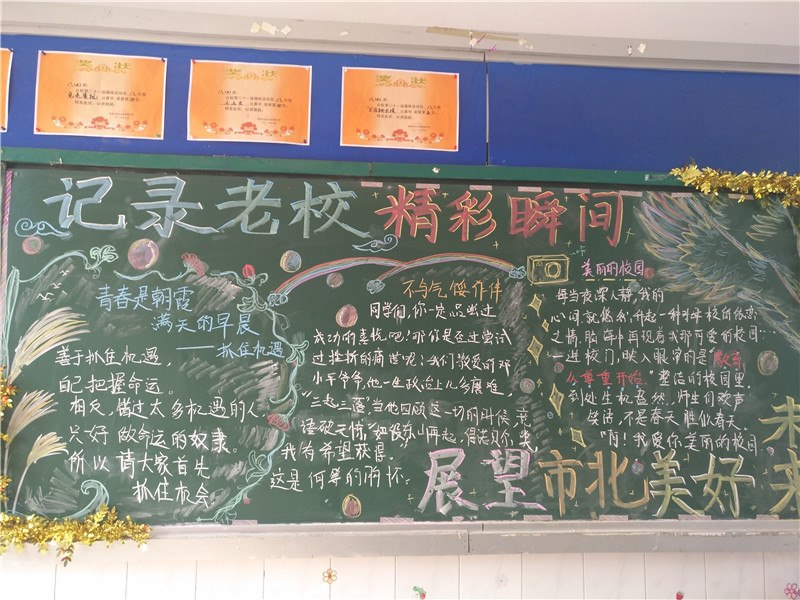 奖状
奖状
奖状
记录老校 精彩瞬间
青春是朝霞
满天的早晨
——抓住机遇
善于抓住机遇，
自己把握命运。
相反，错过太多机遇的人
只好做命运的奴隶。
所以请大家首先
抓住机会
不与气馁作伴
同学们，你一定品尝过
成功的喜悦吧！那你是否也尝试
过挫折的痛苦呢？我们敬爱的邓
小平爷爷，他一生政治上几多磨难，
"三起三落"当他回顾这一切的时候
我有希望获得。
这是何等的胸怀
美丽的校园
每当夜深人静，我的
心间就悠然升起一种对学校的依恋
之情，脑海中再现着我那可爱的校园…
一进校门，映入眼帘的是"教育
从尊重开始"整洁的校园里，
到处生机盎然，师生们欢声
笑语，不是春天胜似春天。
"啊！我爱你美丽的校园
展望市北美好未来